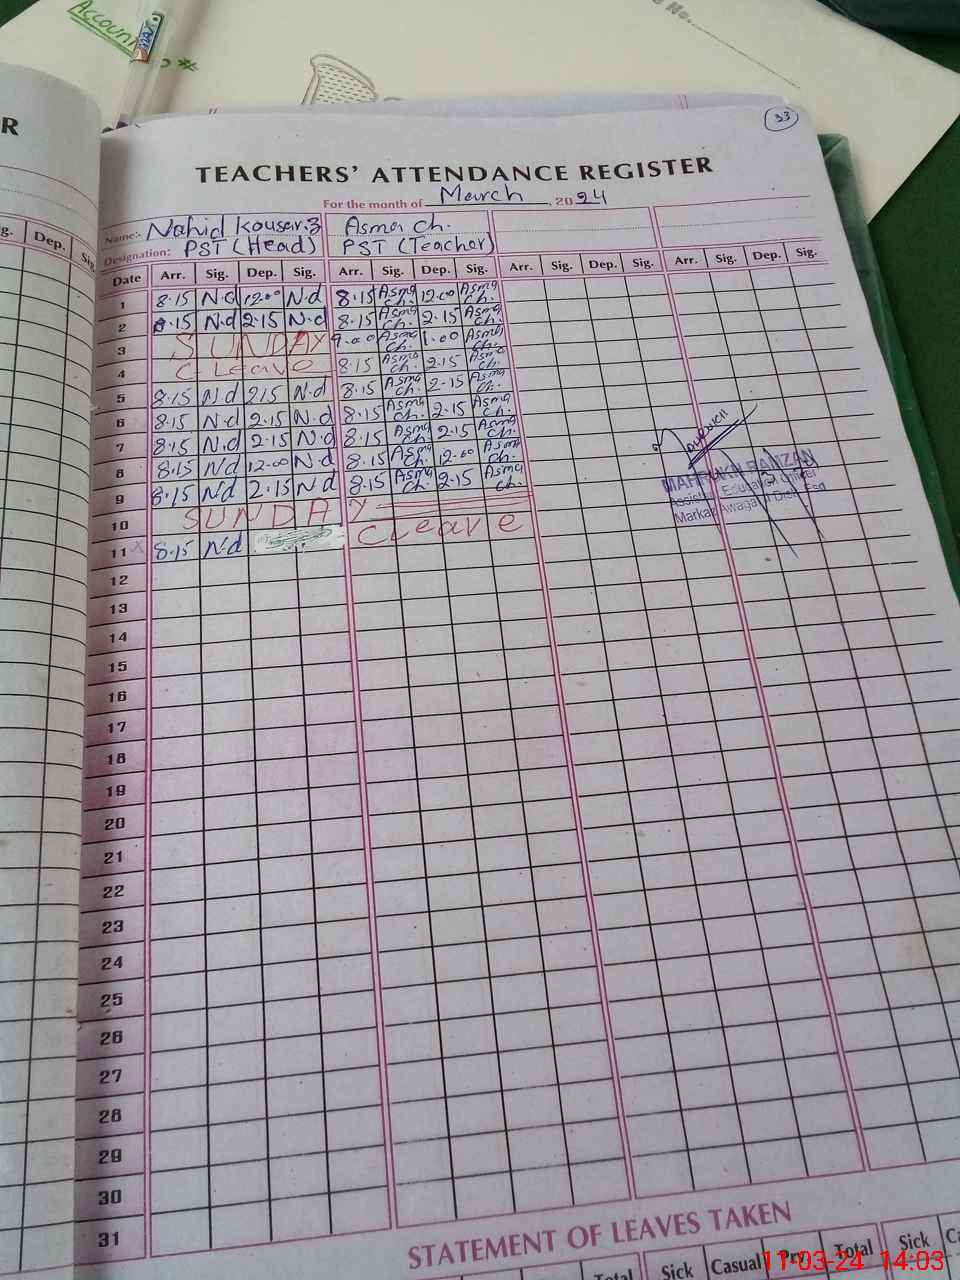 Accoun
MAX
e No.
33
R
TEACHERS' ATTENDANCE REGISTER
For the month of March, 2024
Name:- Nahid Kousar.z Asma ch.
Designation: PST (Head) PST (Teacher)
g. Dep. Sig
Date Arr. Sig. Dep. Sig. Arr. Sig. Dep. Sig. Arr. Sig. Dep. Sig. Arr. Sig. Dep. Sig.
1 8.15 N.d 12.00 N.d 8.15 Asma ch. 12.00 Asma ch.
2 8.15 N.d 2.15 N.d 8.15 Asma ch. 2.15 Asma ch.
3 SUNDAY 9.00 Asma ch. 1.00 Asma ch.
4 C-Leave 8.15 Asma ch. 2.15 Asma ch.
5 8.15 N.d 2.15 N.d 8.15 Asma ch. 2.15 Asma ch.
6 8.15 N.d 2.15 N.d 8.15 Asma ch. 2.15 Asma ch.
7 8.15 N.d 2.15 N.d 8.15 Asma ch. 2.15 Asma ch.
8 8.15 N.d 12.00 N.d 8.15 Asma ch. 12.00 Asma ch.
9 8.15 N.d 2.15 N.d 8.15 Asma ch. 2.15 Asma ch.
10 SUNDAY
11 8.15 N.d C leave
MAHRUKH RAMZAN
Assistant Education Officer
Markaz Awaga
12
13
14
15
16
17
18
19
20
21
22
23
24
25
26
27
28
29
30
31
STATEMENT OF LEAVES TAKEN
Total Sick Casual Prv. Total Sick Ca
11-03-24 14:03